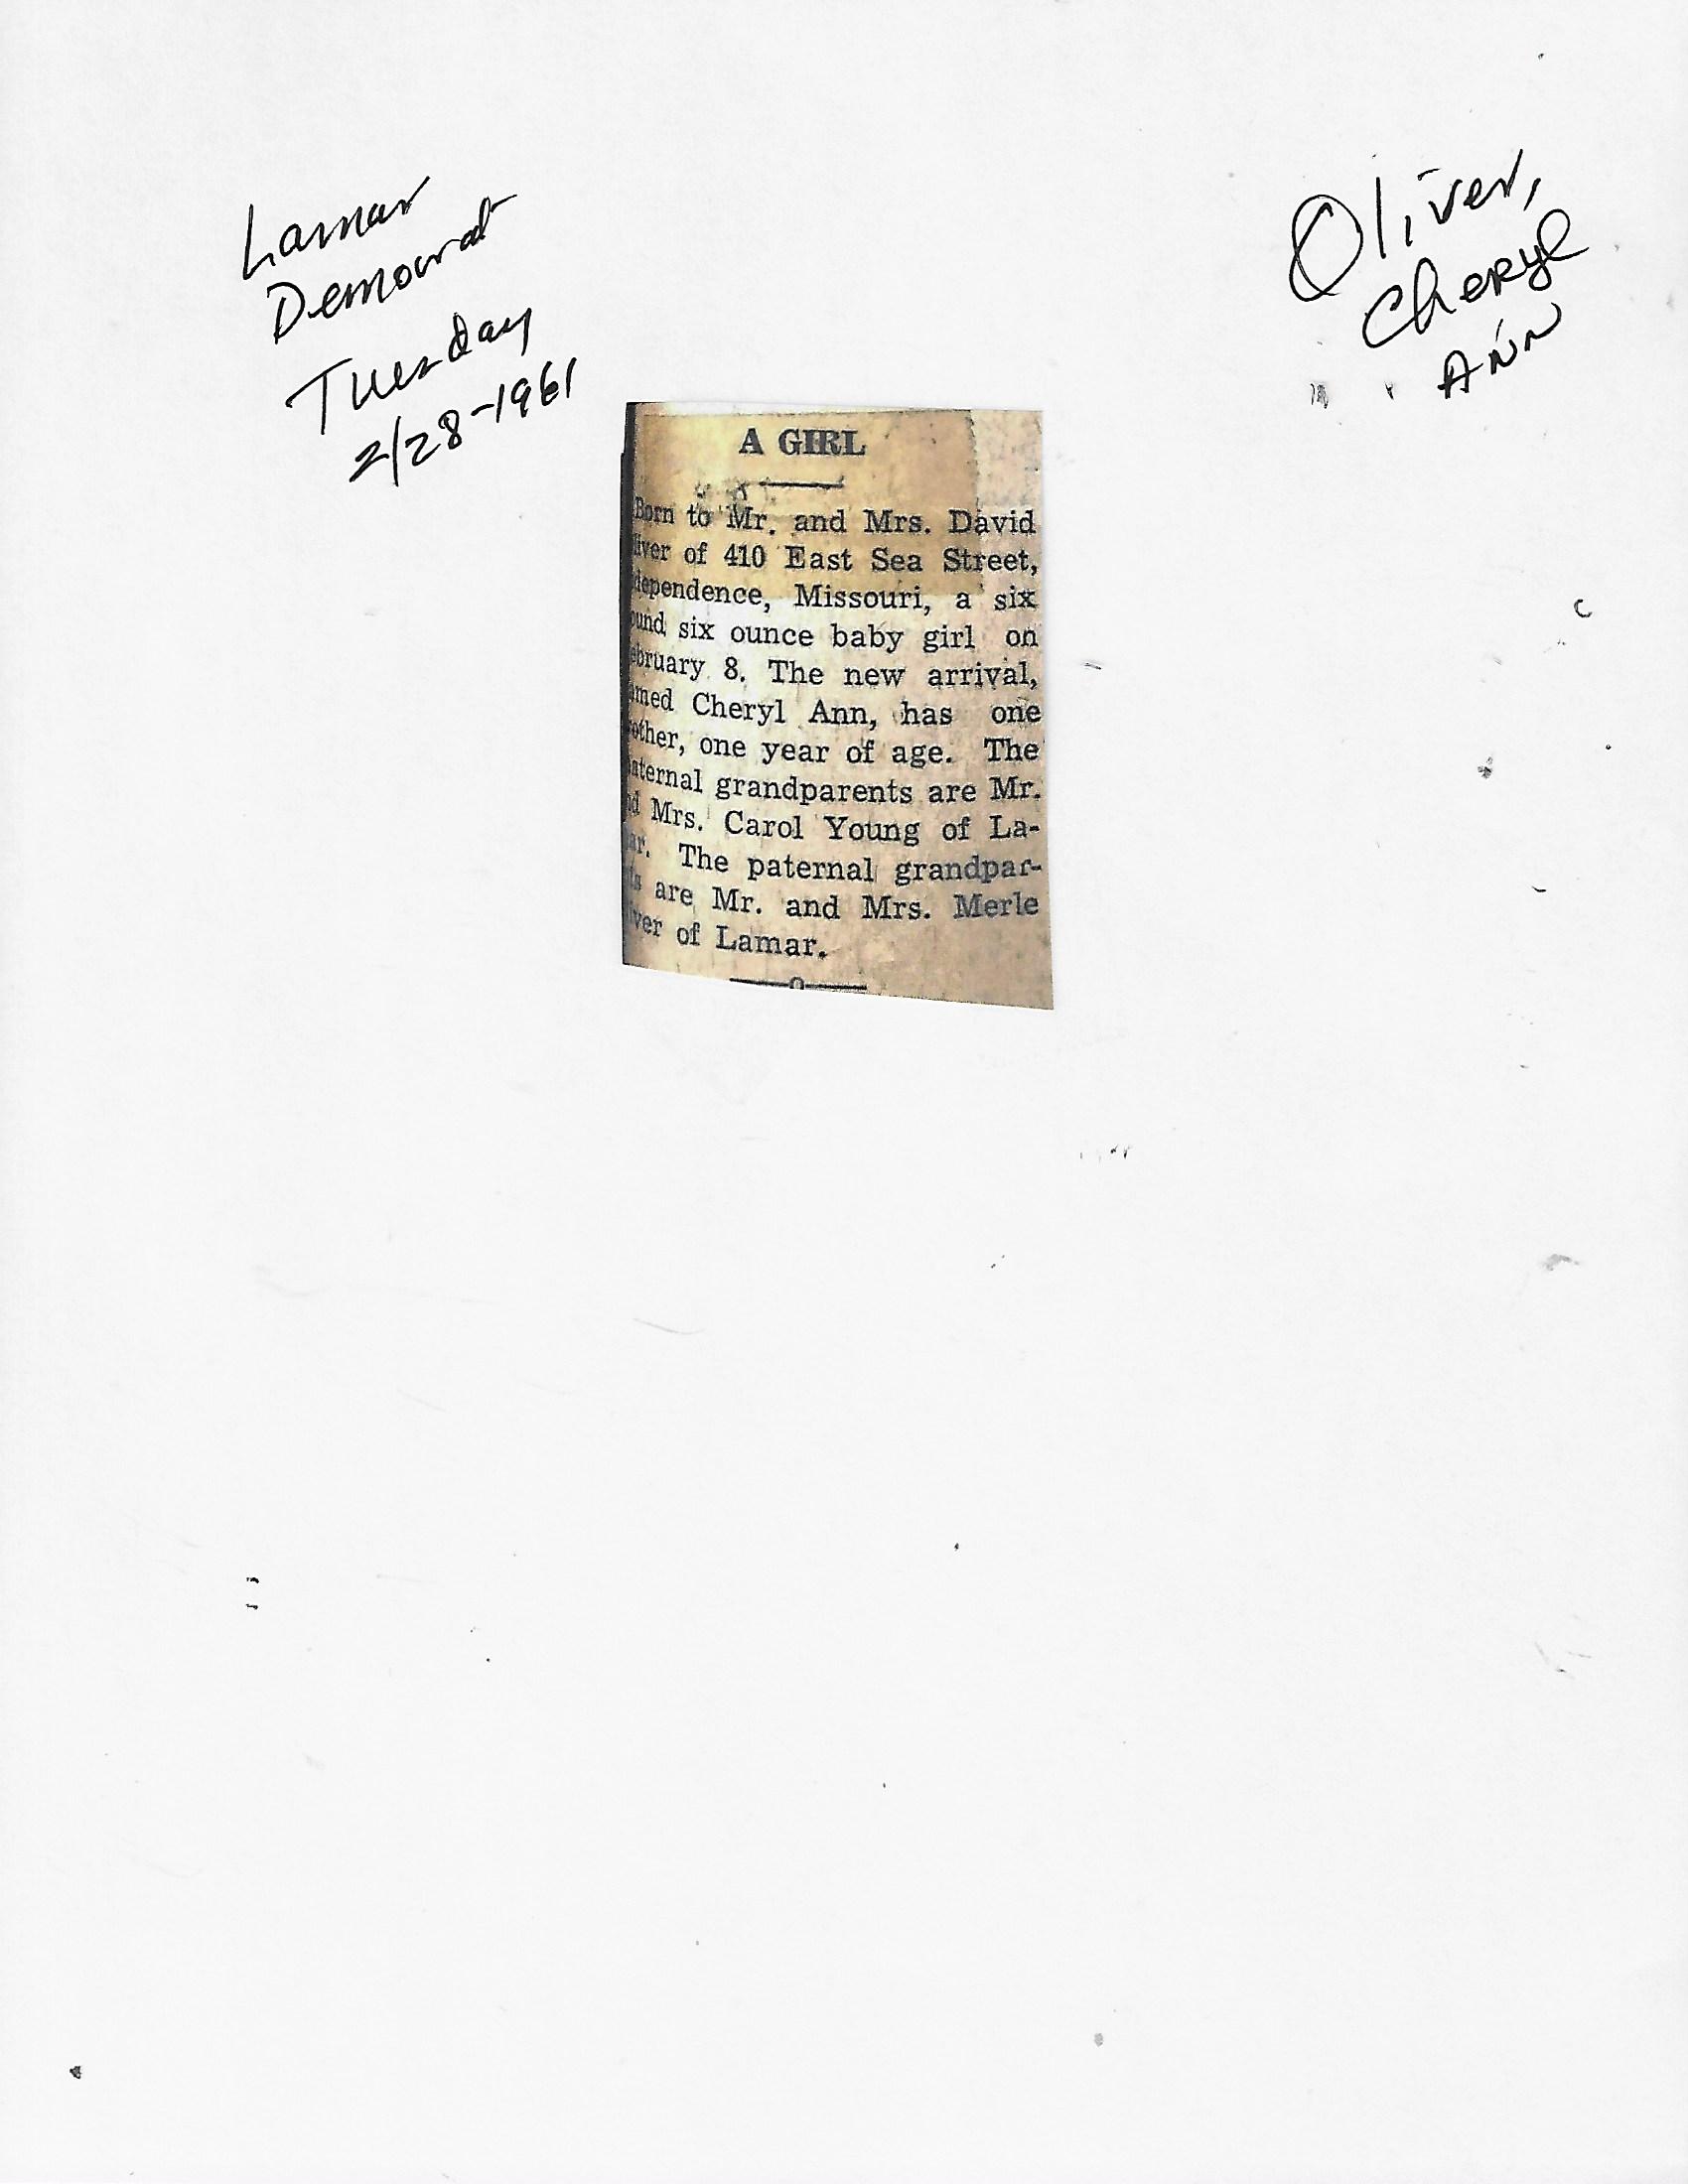 Lamar
Democrat
Tuesday
2/28-1961
Oliver,
Cheryl
ANN
A GIRL
Born to Mr. and Mrs. David
liver of 410 East Sea Street,
dependence, Missouri, a six
ound six ounce baby girl on
ebruary 8. The new arrival,
amed Cheryl Ann, has one
other, one year of age. The
aternal grandparents are Mr.
nd Mrs. Carol Young of La-
ar. The paternal grandpar-
ts are Mr. and Mrs. Merle
iver of Lamar.